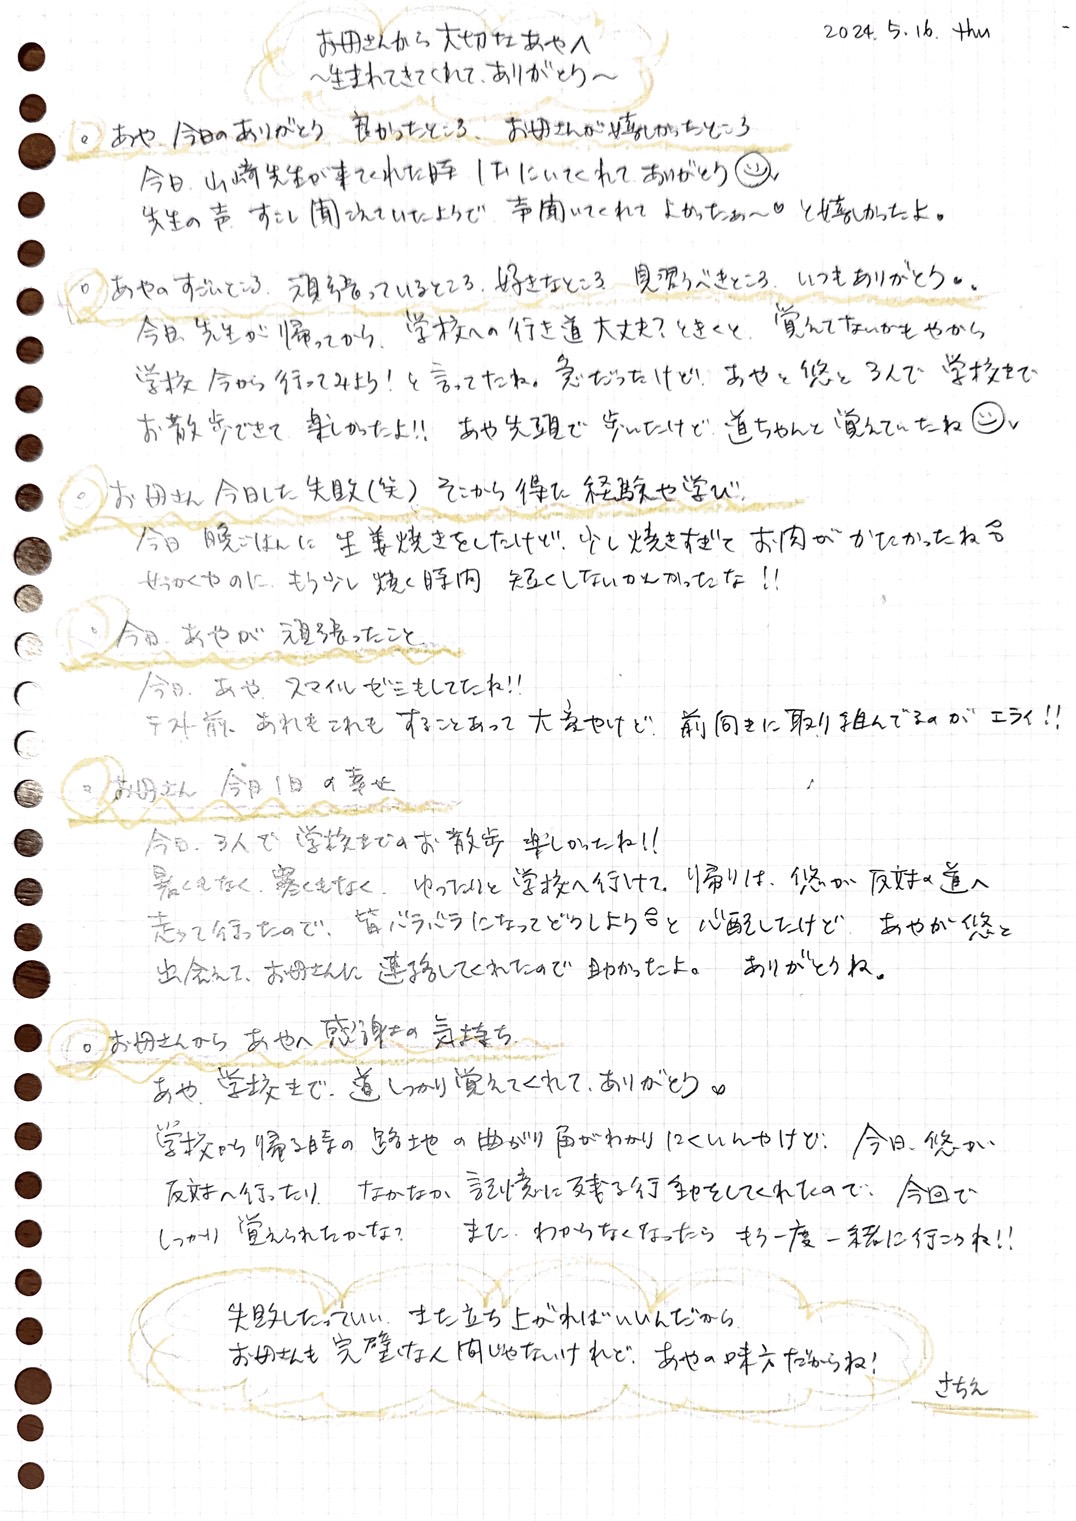 2024. 5. 16. thu
お母さんから 大切な あやへ
〜生まれてきてくれて、ありがとう〜
。あや、今日のありがとう 良かったところ、お母さんが嬉しかったところ
今日、山﨑先生が来てくれた時 1Fにいてくれて、ありがとう
先生の声 すこし聞こえていたようで 声聞いてくれて よかったぁ〜♡ と嬉しかったよ。
。あやのすごいところ、頑張っているところ、好きなところ 見習うべきところ、いつもありがとう♡。
今日、先生が帰ってから、学校への行き道大丈夫？ときくと、覚えてないかもやから
学校 今から行ってみよう！と言ってたね。急だったけど！ あやと悠と3人で 学校まで
お散歩できて 楽しかったよ!! あや先頭で 歩いたけど、道ちゃんと覚えていたね
。お母さん 今日した失敗(笑) そこから得た 経験や学び、
今日 晩ごはんに 生姜焼きをしたけど、少し焼きすぎて お肉が かたかったね
せっかくやのに、もう少し 焼く時間 短くしないかんかったな!!
。今日、あやが 頑張ったこと、
今日、あや、スマイルゼミもしてたね!!
テスト前、あれもこれも することあって 大変やけど 前向きに取り組んでるのが エライ!!
。お母さん 今日1日の幸せ
今日、3人で 学校までのお散歩 楽しかったね!!
暑くもなく、寒くもなく、ゆったりと 学校へ行けて、帰りは、悠が 反対の道へ
走って行ったので、皆バラバラになってどうしようと 心配したけど あやが悠と
出会えて、お母さんに 連絡してくれたので 助かったよ。 ありがとうね。
。お母さんから あやへ 感謝の 気持ち、
あや、学校まで、道しっかり覚えてくれて、ありがとう♡
学校から帰る時の 路地の曲がり角がわかりにくいんやけど、今日、悠が、
反対へ行ったり、なかなか 記憶に残る行動をしてくれたので、今回で
しっかり 覚えられたかな？ また、わからなくなったら もう一度 一緒に行こうね!!
失敗したっていい、また立ち上がればいいんだから、
お母さんも 完璧な人間じゃないけれど、あやの味方だからね！
さちえ